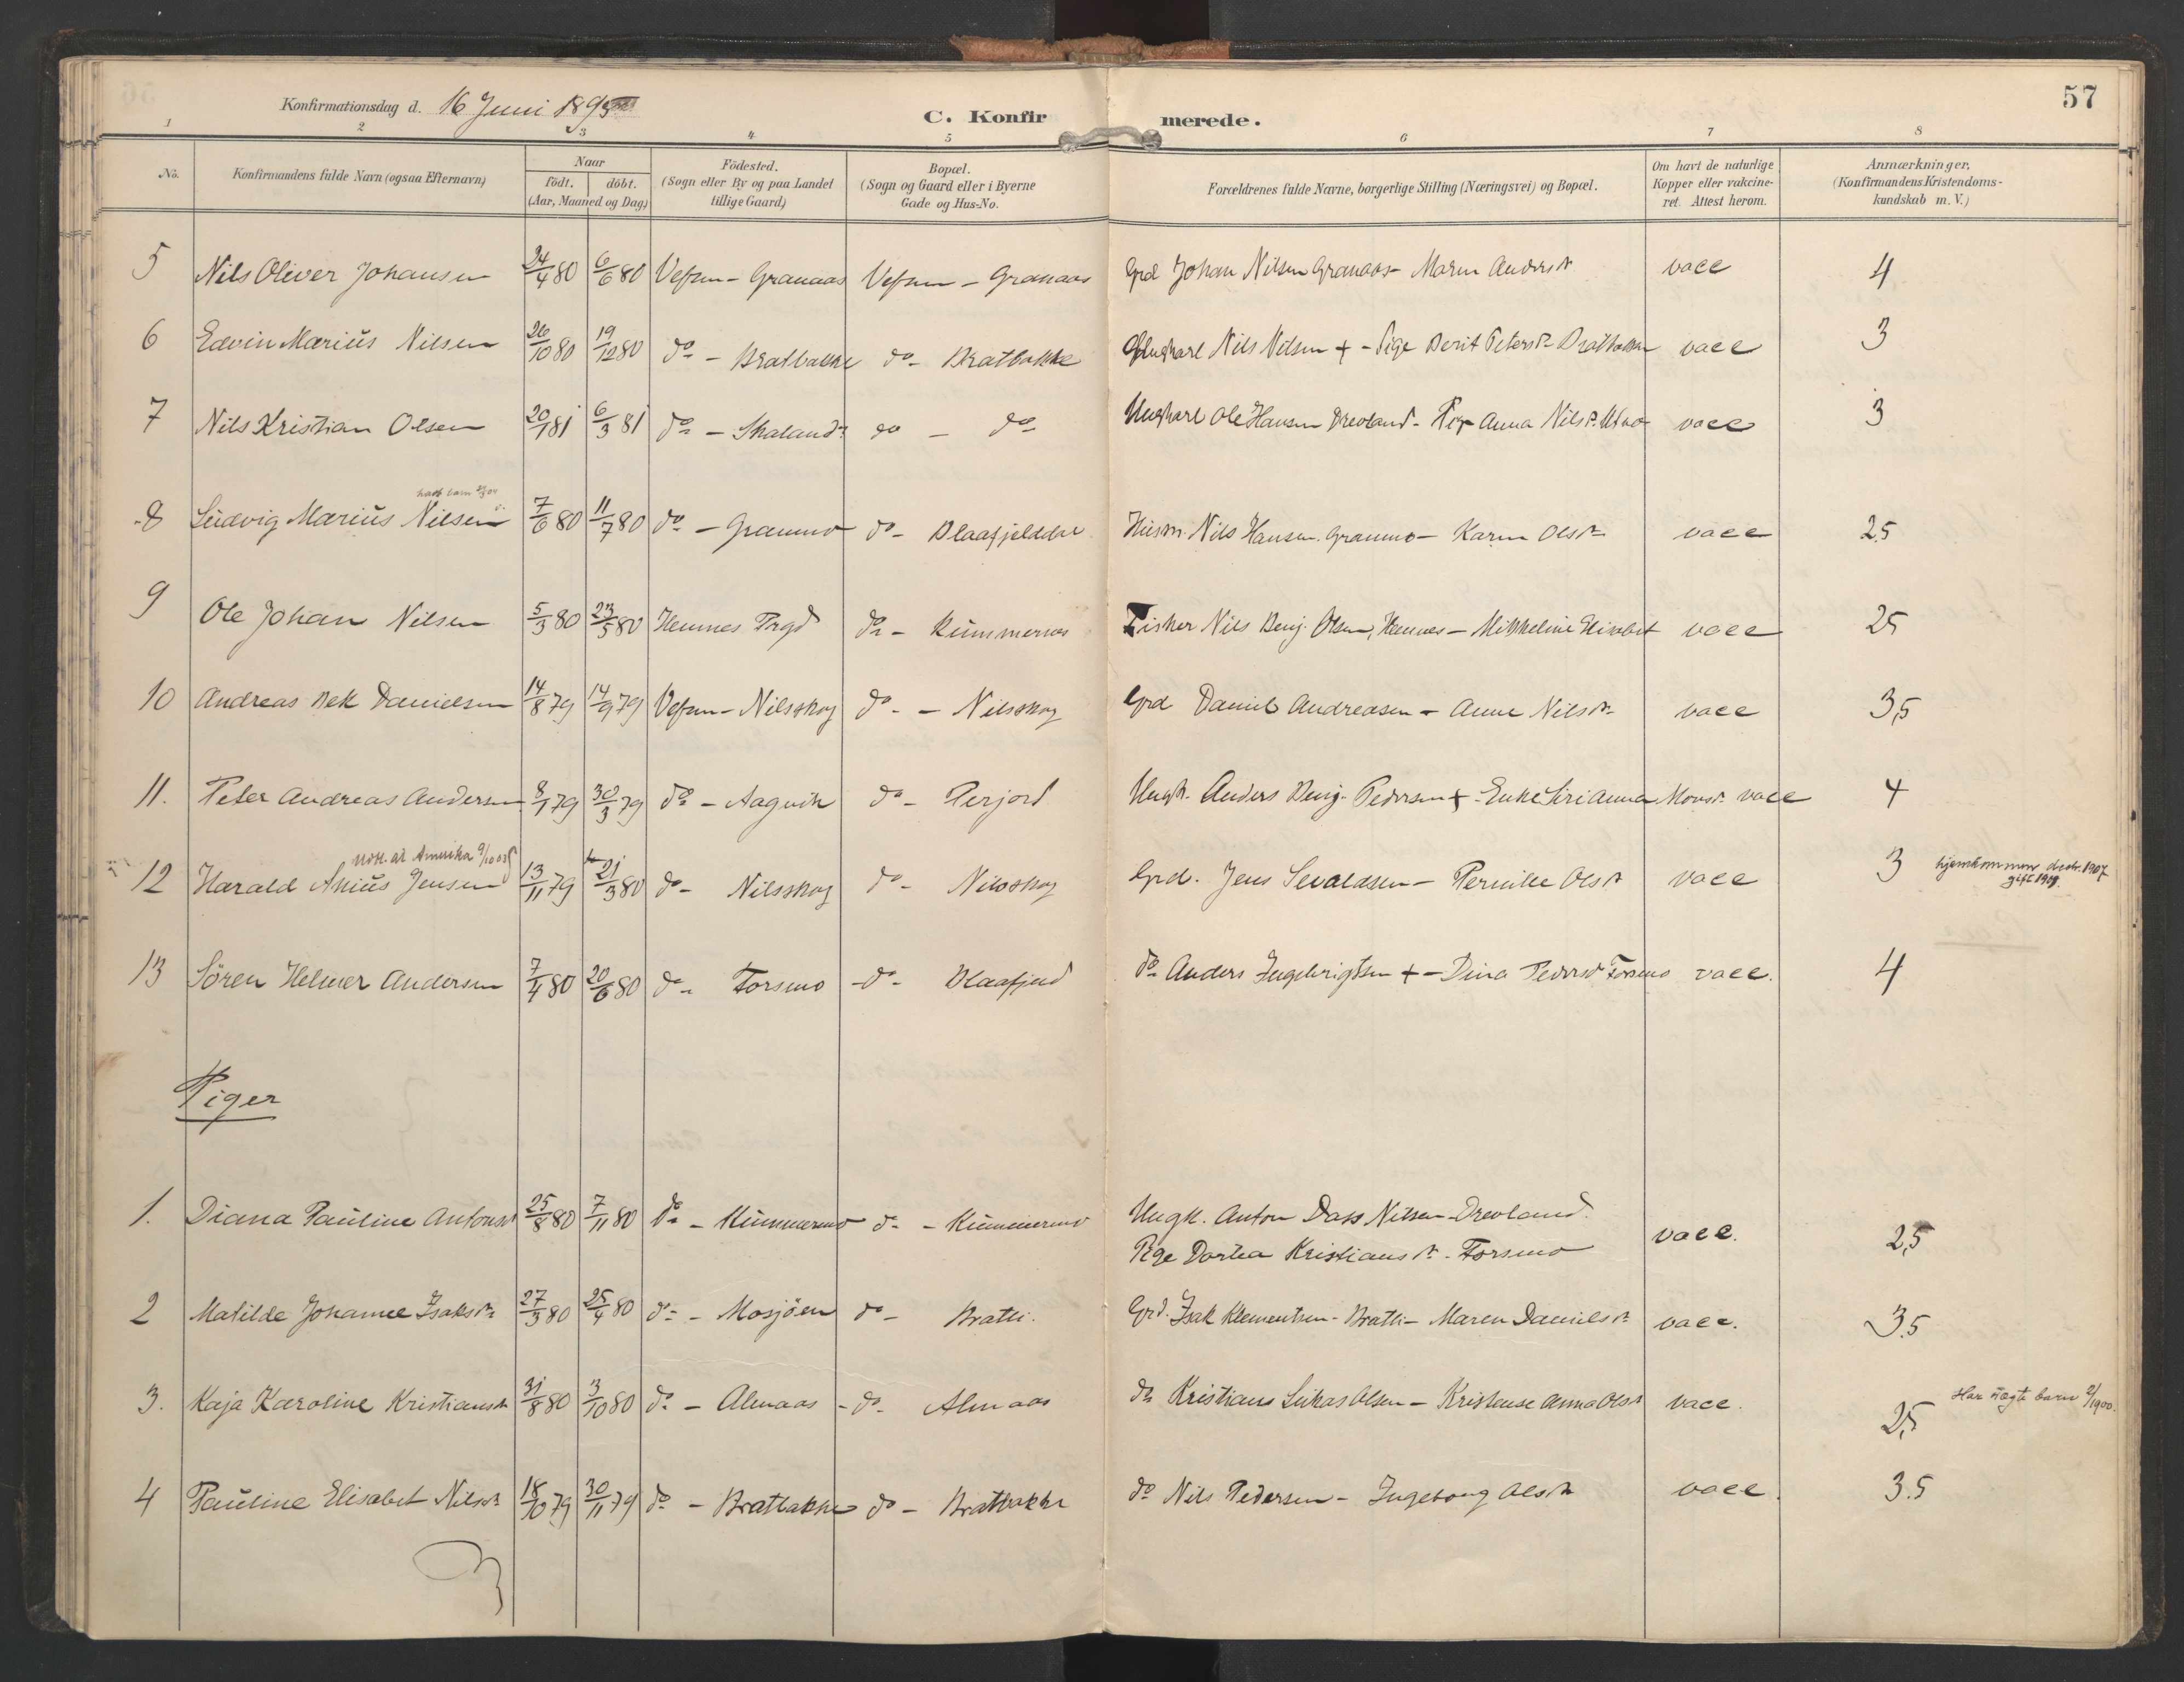 57
Konfirmationsdag d. 16 Juni 1895
C. Konfirmerede.
1 2 3 4 5 6 7 8
No.
Konfirmandens fulde Navn (ogsaa Efternavn)
Naar
födt. döbt.
(Aar, Maaned og Dag)
Födested.
(Sogn eller By og paa Landet
tillige Gaard)
Bopæl.
(Sogn og Gaard eller i Byerne
Gade og Hus-No.
Forældrenes fulde Navne, borgerlige Stilling (Næringsvei) og Bopæl.
Om havt de naturlige
Kopper eller vakcine-
ret. Attest herom.
Anmærkninger,
(Konfirmandens Kristendoms-
kundskab m. V.)
5 Nils Oliver Johansen 24/4 80 6/6 80 Vefsen - Granaas Vefsen - Granaas Grd Johan Nilsen Granaas - Maren Andersdr vacc 4
6 Edvin Marius Nilsen 26/10 80 19/12 80 do - Bratbakke do - Bratbakke Ungkarl Nils Nilsen + - Pige Berit Petersdr Bratbakken vacc 3
7 Nils Kristian Olsen 20/1 81 6/3 81 do - Skaland do - do Ungkarl Ole Hansen Drevland - Pige Anna Nilsdr. vacc 3
8 Ludvig Marius Nilsen 7/6 80 11/7 80 do - Granmo do - Blaafjelddal Husm. Nils Hansen Granmo - Karen Olsdr vacc 25
9 Ole Johan Nilsen 5/3 80 23/5 80 Hemnes Prgd do - Kummermo Fisker Nils Benj. Olsen, Hemnes - Mikkeline Elisabet vacc 25
10 Andreas Bek Danielsen 14/8 79 14/9 79 Vefsen - Nilsskog do - - Nilsskog Grd Daniel Andreasen - Anne Nilsdr vacc 3,5
11. Peter Andreas Andersen 8/1 79 30/3 79 do - Aagvik do - Perjord Ungk. Anders Benj. Pedersen + - Enke Siri Anna Monsdr. vacc 4
Utst. at Amerika 9/10 03
12 Harald Anius Jensen 13/11 79 21/3 80 do - Nilsskog do - Nilsskog Grd. Jens Sevaldsen - Pernille Olsdr vacc 3 hjemkommen decbr. 1907
gift 1909.
13 Sören Helmer Andersen 7/4 80 20/6 80 do - Forsmo - do - Blaafjeld do Anders Ingebrigtsen + - Dina Pedersdr Forsmo vacc. 4
Piger
1. Diana Pauline Antonsdr 25/8 80 7/11 80 do - Kummermo do - Kummermo Ungk. Anton Dass Nilsen - Drevland.
Pige Dortea Kristiansdr. Forsmo vacc. 2,5
2 Matilde Johanne Isaksdr 27/3 80 25/4 80 do - Mosjöen do - Bratli. Grd. Isak Klementsen - Bratli - Maren Danielsdr vacc. 3.5
3. Kaja Karoline Kristiansdr 31/8 80 3/10 80 do - Almaas - do - Almaas do Kristians Lukas Olsen - Kristense Anna Olsdr vacc. 2,5 Har ægte barn 2/1900.
4 Pauline Elisabet Nilsdr 18/10 79 30/11 79 do - Bratbakke do - Bratbakke do Nils Pedersen - Ingeborg Olsdr vacc. 3.5